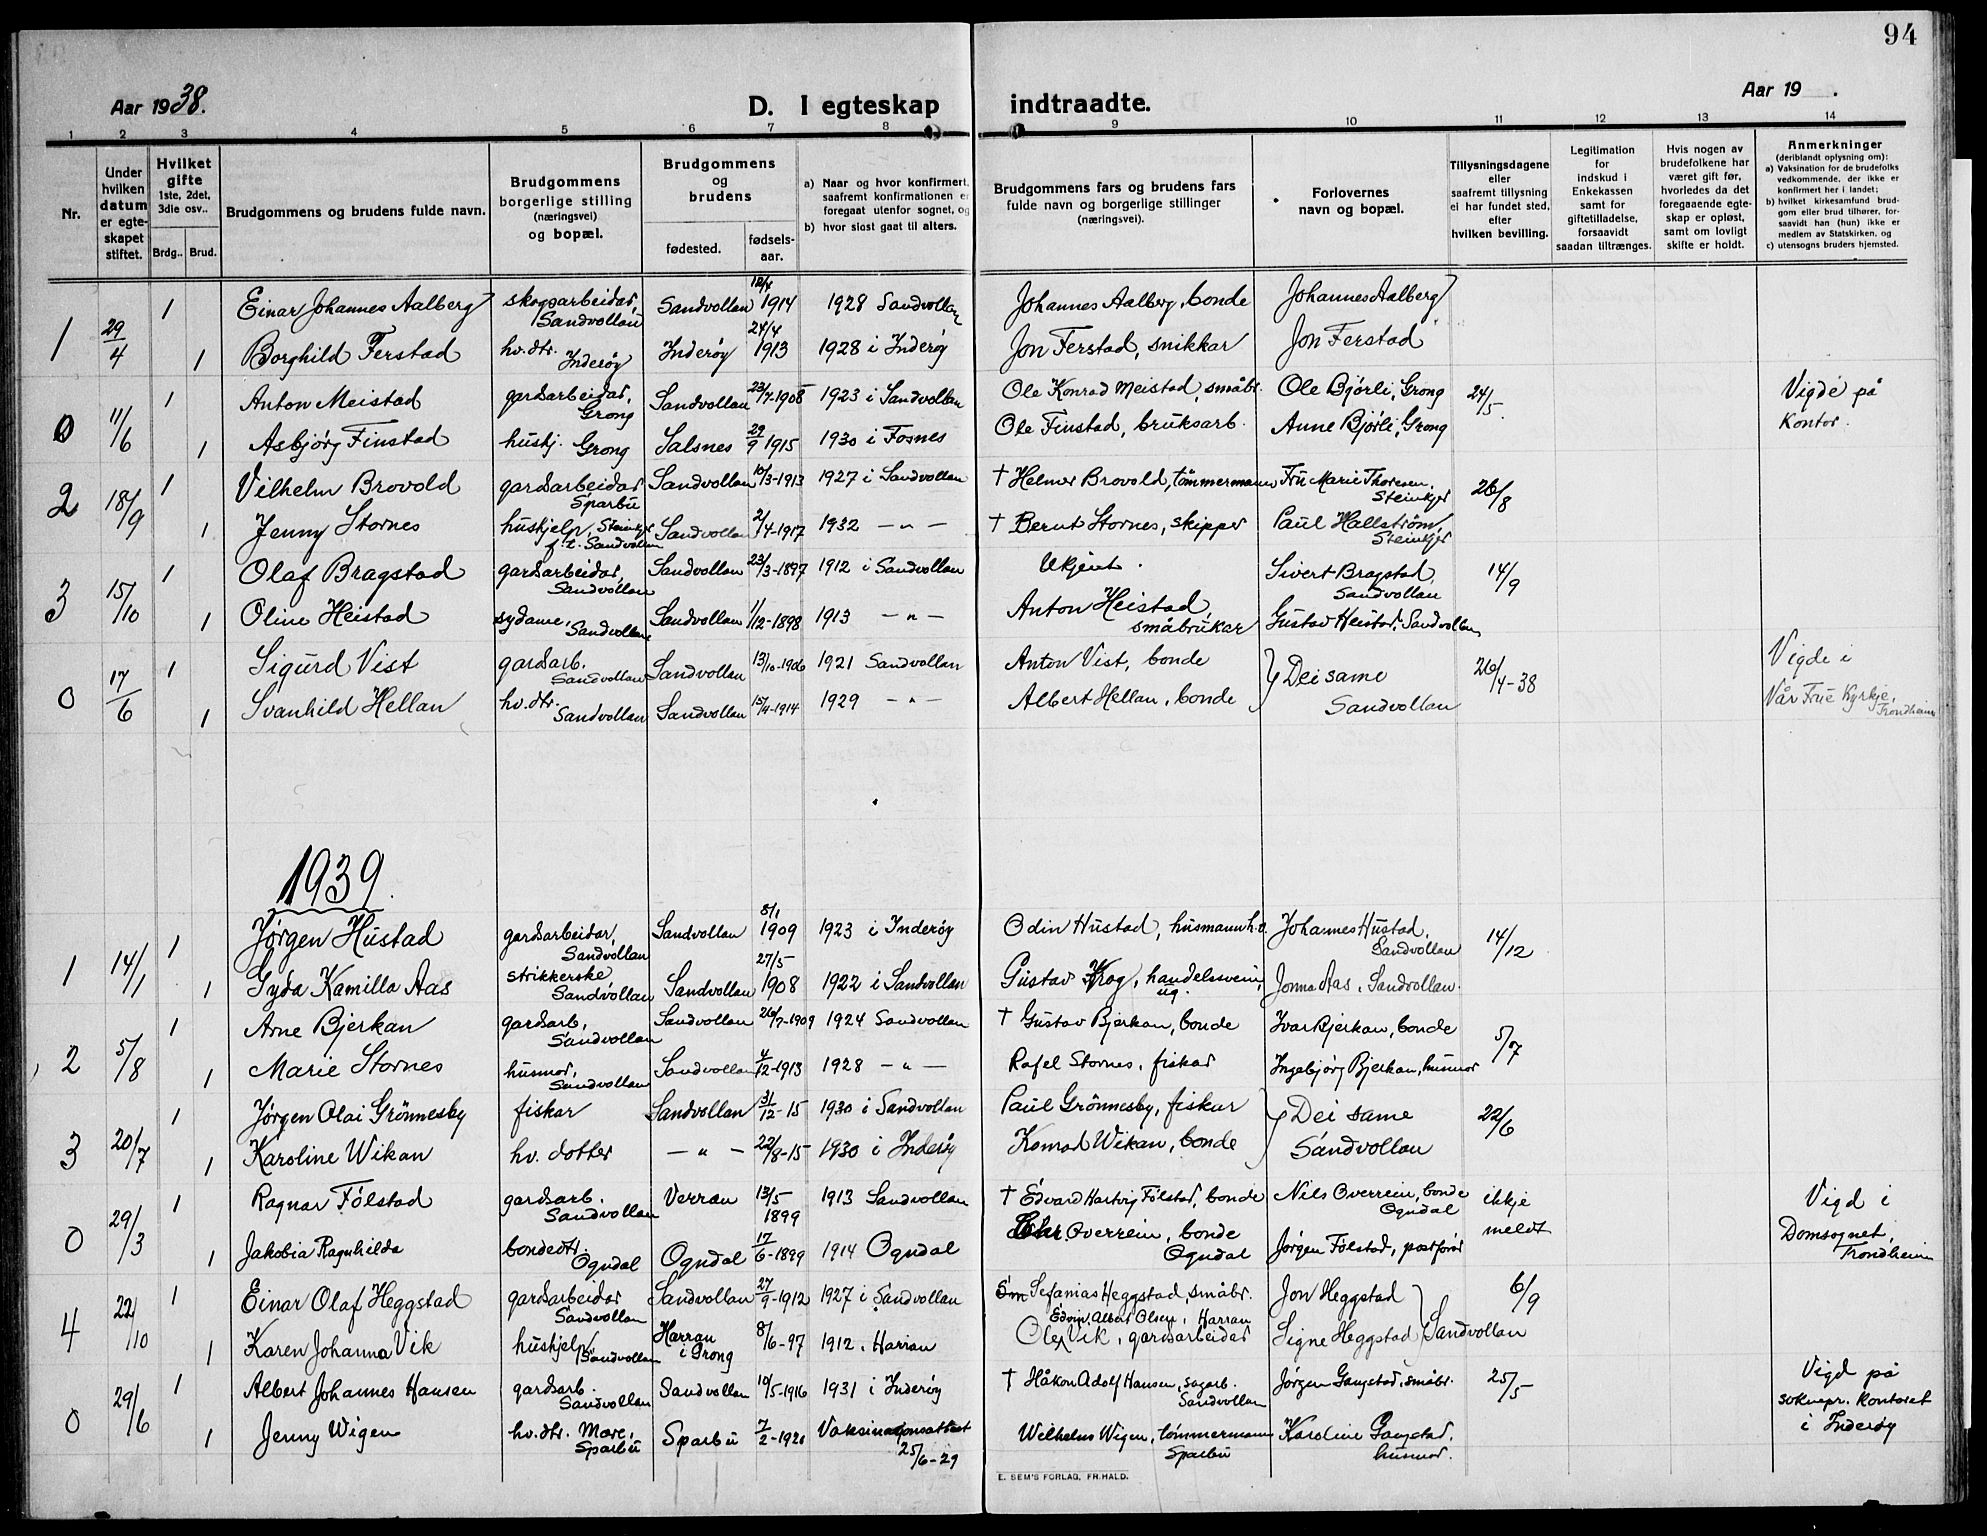 94
Aar 1938.
D. I egteskap indtraadte.
Aar 19 .
1 2 3 4 5 6 7 8 9 10 11 12 13 14
Nr.
Under hvilken datum er egteskapet stiftet.
Hvilket gifte 1ste, 2det, 3die osv..
Brdg.. Brud.
Brudgommens og brudens fulde navn.
Brudgommens borgerlige stilling (næringsvei) og bopæl.
Brudgommens og brudens
fødested.
fødselsaar.
a) Naar og hvor konfirmert, saafremt konfirmationen er foregaat utenfor sognet, og
b) hvor sidst gaat til alters.
Brudgommens fars og brudens fars fulde navn og borgerlige stillinger (næringsvei).
Forlovernes navn og bopæl.
Tillysningsdagene eller saafremt tillysning ei har fundet sted, efter hvilken bevilling.
Legitimation for indskud i Enkekassen samt for giftetilladelse, forsaavidt saadan tiltrænges.
Hvis nogen av brudefolkene har været gift før, hvorledes da det foregaaende egteskap er opløst, samt om lovligt skifte er holdt.
Anmerkninger (deriblandt oplysning om):
a) Vaksination for de brudefolks vedkommende, der ikke er konfirmert her i landet;
b) hvilket kirkesamfund brudgom eller brud tilhører, forsaavidt han (hun) ikke er medlem av Statskirken, og
c) utensogns bruders hjemsted.
1 29/4 1 Einar Johannes Aalberg skogsarbeidar, Sandvollan Sandvollan 12/8 1914 1928 Sandvollan Johannes Aalberg, bonde Johannes Aalberg
1 Borghild Ferstad hv.dtr. Inderøy Inderøy 24/4 1913 1928 i Inderøy Jon Ferstad, snikkar Jon Ferstad
0 11/6 1 Anton Meistad gardsarbeidar, Grong Sandvollan 23/7-1908 1923 i Sandvollan Ole Konrad Meistad, småbr. Ole Bjørli, Grong 24/5. Vigde på
1 Asbjørg Finstad hushj. Grong Salsnes 29/9 1915 1930 i Fosnes Ole Finstad, bruksarb. Anne Bjørli, Grong Kontor.
2 18/9 1 Vilhelm Brovold gardsarbeidar Sparbu Sandvollan 10/3-1913 1927 i Sandvollan † Helmer Brovold, tømmermann Fru Marie Thoresen, Steinkjer 26/8
1 Jenny Stornes hushjelp, Steinkjer f.t. Sandvollan Sandvollan 2/4-1917 1932 — " — † Bernt Stornes, skipper Paul Hallstrøm, Steinkjer
3 15/10 1 Olaf Bragstad gardsarbeidar, Sandvollan Sandvollan 23/3-1897 1912 i Sandvollan Ukjent. Sivert Bragstad, Sandvollan 14/9
1 Oline Heistad sydame, Sandvollan Sandvollan 1/12-1898 1913 — " — Anton Heistad, småbrukar Gustav Heistad, Sandvollan
0 17/6 1 Sigurd Vist gardsarb. Sandvollan Sandvollan 13/10-1906 1921 Sandvollan Anton Vist, bonde Dei same 26/4-38 Vigde i
1 Svanhild Hellan hv.dtr. Sandvollan Sandvollan 15/4-1914 1929 — " — Albert Hellan, bonde Sandvollan Vår Frue Kyrkje, Trondheim
1939.
1 14/1 1 Jørgen Hustad gardsarbeidar, Sandvollan Sandvollan 8/1 1909 1923 i Inderøy Odin Hustad, husmann Johannes Hustad, Sandvollan 14/12
1 Gyda Kamilla Aas strikkerske Sandvollan Sandvollan 27/5 1908 1922 i Sandvollan Gustav Krog, handelssvein, ug. Jonna Aas, Sandvollan.
2 5/8 1 Arne Bjerkan gardsarb, Sandvollan Sandvollan 26/7-1909 1924 Sandvollan † Gustav Bjerkan, bonde Ivar Bjerkan, bonde 5/7
1 Marie Stornes husmor, Sandvollan Sandvollan 4/12-1913 1928 — " — Rafel Stornes, fiskar Ingebjørg Bjerkan, husmor
3 20/7 1 Jørgen Olai Grönnesby fiskar Sandvollan 31/12-15 1930 i Sandvollan Paul Grönnesby, fiskar Dei same 22/6
1 Karoline Wikan hv. dotter — " — 22/8-15 1930 i Inderøy Konrad Wikan, bonde Sandvollan
0 29/3 1 Ragnar Følstad gardsarb. Sandvollan Verran 13/5 1899 1913 Sandvollan † Edvard Hartvig Følstad, bonde Nils Overrein, bonde Ogndal ikkje Vigd i
1 Jakobia Ragnhilda bondedtr. Ogndal Ogndal 17/6-1899 1914 Ogndal Overrein, bonde Ogndal Jørgen Følstad, postførar meldt Domsognet, Trondheim
4 22/10 1 Einar Olaf Heggstad gardsarbeidar Sandvollan Sandvollan 27/9-1912 1927 i Sandvollan Sefanias Heggstad, småbr. Jon Heggstad 6/9
1 Karen Johanna Vik hushjelp, Sandvollan Harran i Grong 8/6-97 1912. Harran Edvin Albert Olsen, Harran Ole Vik, gardsarbeidar Signe Heggstad Sandvollan
0 29/6 1 Albert Johannes Hansen gardsarb. Sandvollan Sandvollan 10/5-1916 1931 i Inderøy † Håkon Adolf Hansen, sagarb. Sandvollan Jørgen Gangstad, småbr. 25/5 Vigd på
1 Jenny Wigen hv.dtr. Mære, Sparbu Sparbu 7/2-1921 Vaksinasjonsattest 25/6-29 Wilhelm Wigen, tømmermann Sparbu Karoline Gangstad, husmor. soknepr. kontoret i Inderøy
E. SEM'S FORLAG, FR.HALD.